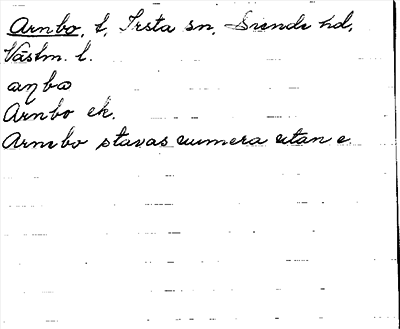 Arnbo, t, Irsta sn, Siende hd,
Västm. l.
aɳbω
Arnbo ek.
Arnebo stavas numera utan e